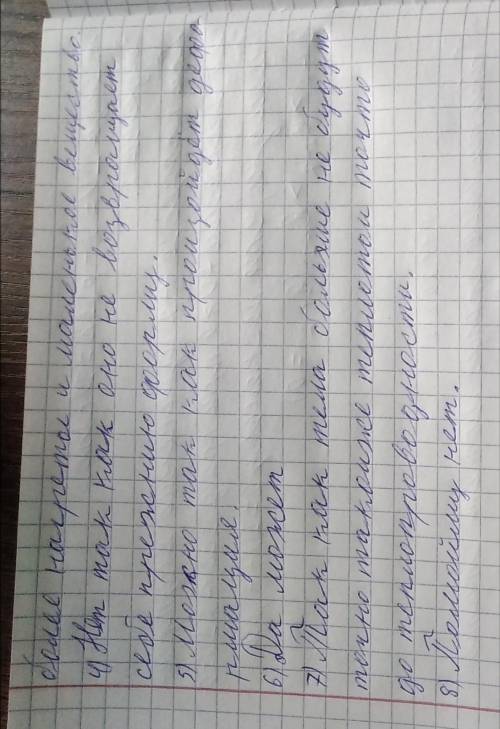 более нагретое и маленькое вещество.
4) Нет так как оно не возвращает
себе прежнию форму.
5) Можно так как произойдёт дефо
рмация.
6) Да может
7) Так как тела больше не будут
точно такойже теплотой точто
до теплопроводности.
8) Помойиму нет.